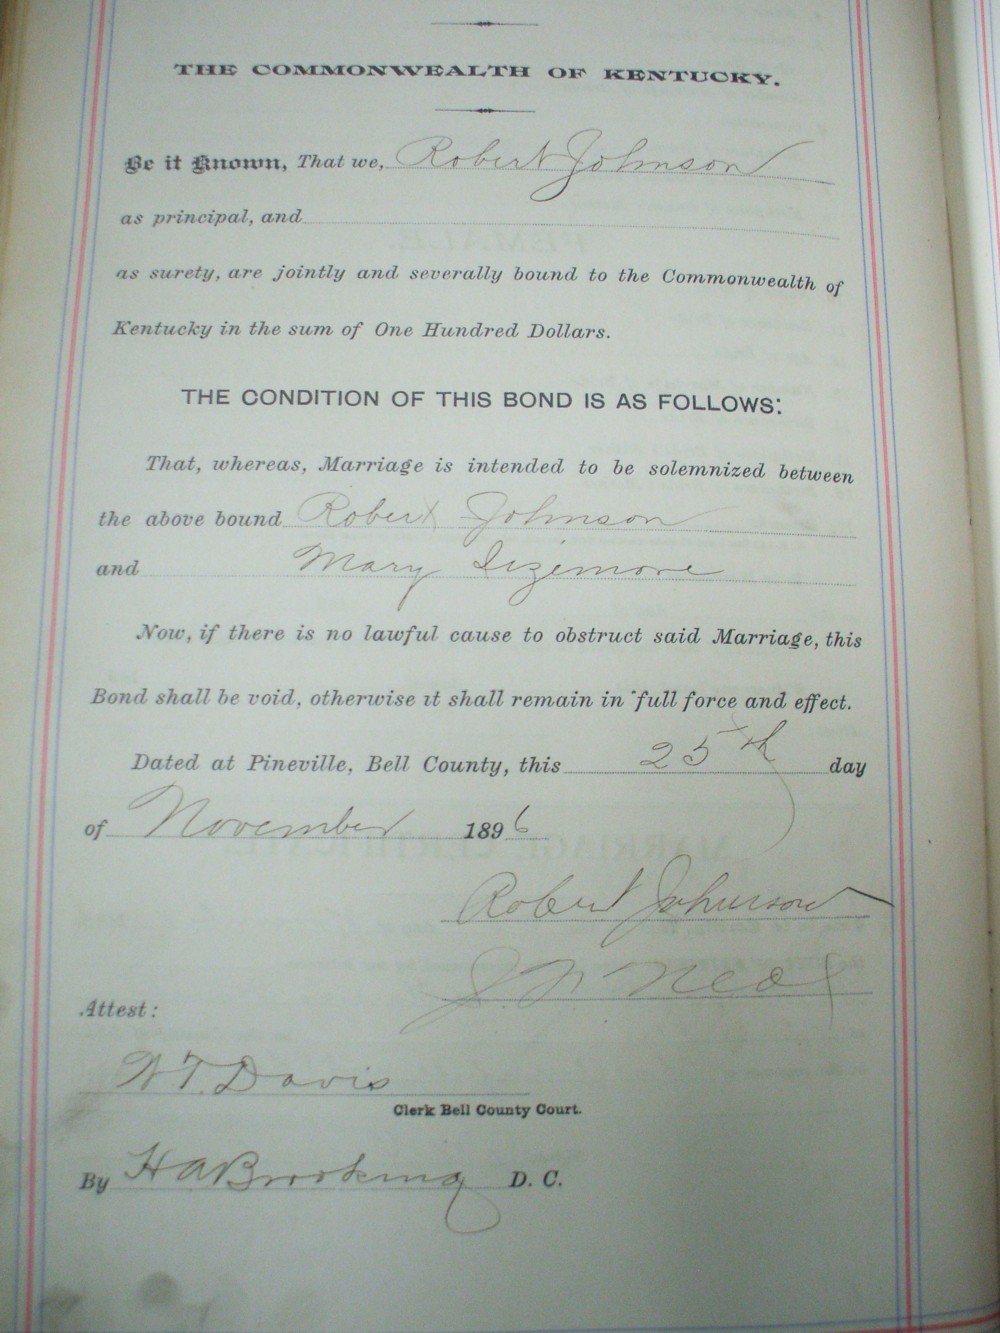 THE COMMONWEALTH OF KENTUCKY.
Be it Known, That we, Robert Johnson
as principal, and
as surety, are jointly and severally bound to the Commonwealth of
Kentucky in the sum of One Hundred Dollars.
THE CONDITION OF THIS BOND IS AS FOLLOWS:
That, whereas, Marriage is intended to be solemnized between
the above bound Robert Johnson
and Mary Sizemore
Now, if there is no lawful cause to obstruct said Marriage, this
Bond shall be void, otherwise it shall remain in full force and effect.
Dated at Pineville, Bell County, this 25th day
of November 1896
Robert Johnson
Neal
Attest:
W.T. Davis
Clerk Bell County Court.
By H A Brooking D. C.